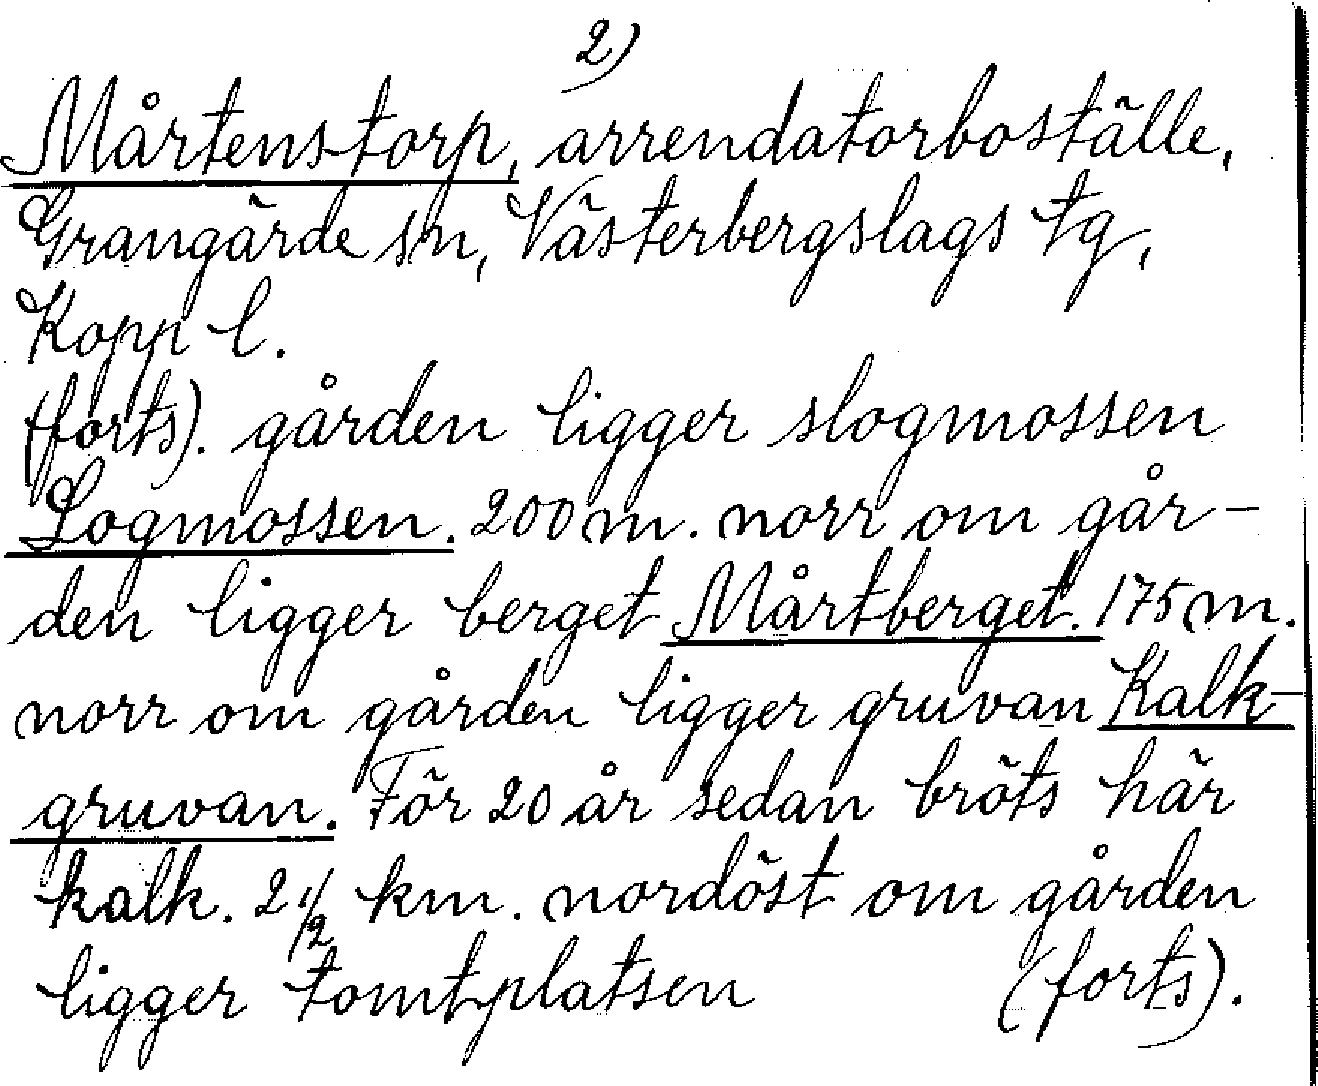 2)
Mårtenstorp, arrendatorboställe,
Grangärde sn, Västerbergslags tg,
Kopp l.
(forts). gården ligger slogmossen
Logmossen. 200 m. norr om går-
den ligger berget Mårtberget. 175 m.
norr om gården ligger gruvan Kalk-
gruvan. För 20 år sedan bröts här
kalk. 2 1/2 km. nordöst om gården
ligger tomtplatsen (forts).